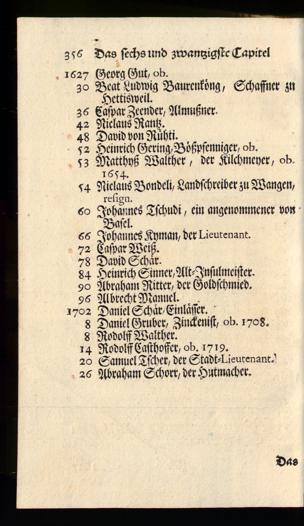 356 Das sechs und zwantzigste Capitel
1627 Georg Gut, ob.
30 Beat Ludwig Baurenköng, Schaffner zu
Hettisweil.
36 Caspar Zeender, Almußner.
42 Niclaus Rantz.
48 David von Rühti.
52 Heinrich Gering, Bößpfenniger, ob.
53 Matthyß Walther, der Kilchmeyer, ob.
1654.
54 Niclaus Bondeli, Landschreiber zu Wangen,
resign.
60 Johannes Tschudi, ein angenommener von
Basel.
66 Johannes Kyman, der Lieutenant.
72 Caspar Weiß.
78 David Schär.
84 Heinrich Sinner, Alt-Insulmeister.
90 Abraham Ritter, der Goldschmied.
96 Albrecht Manuel.
1702 Daniel Schär, Einlässer.
8 Daniel Gruber, Zinckenist, ob. 1708.
8 Rodolff Walther.
14 Rodolff Casthoffer, ob. 1719.
20 Samuel Tscher, der Stadt-Lieutenant.
26 Abraham Schorr, der Hutmacher.
Das